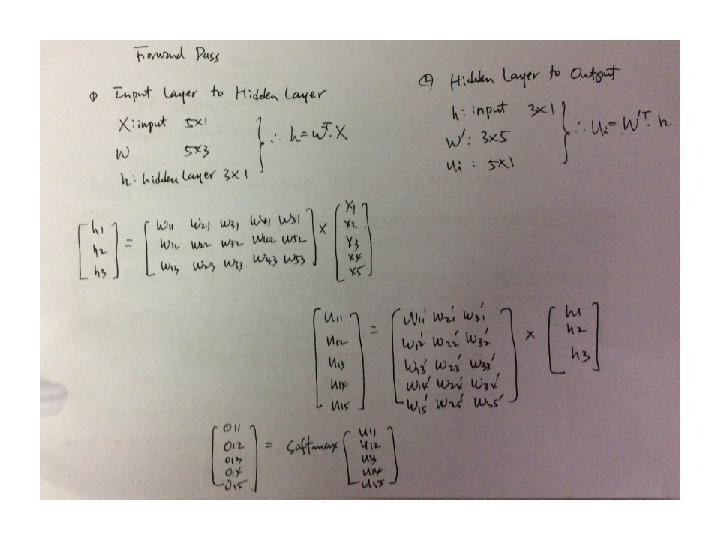 Forward Pass
① Input Layer to Hidden Layer
X: input 5x1
W 5x3
h: hidden Layer 3x1
∴ h=W^T·X
② Hidden Layer to Output
h: input 3x1
W': 3x5
Ui: 5x1
∴ Ui=W'^T·h
[h1 h2 h3] = [W11 W21 W31 W41 W51
W12 W22 W32 W42 W52
W13 W23 W33 W43 W53] × [X1 X2 X3 X4 X5]
[U11 U12 U13 U14 U15] = [W11' W21' W31'
W12' W22' W32'
W13' W23' W33'
W14' W24' W34'
W15' W25' W35'] × [h1 h2 h3]
[O11 O12 O13 O14 O15] = Softmax [U11 U12 U13 U14 U15]